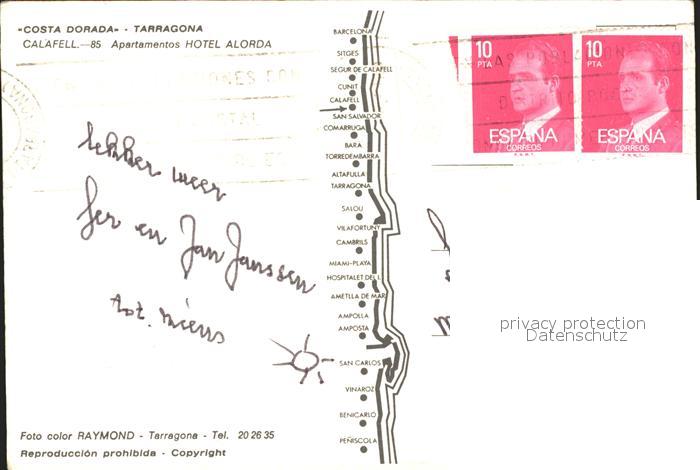 "COSTA DORADA" - TARRAGONA
CALAFELL.—85 Apartamentos HOTEL ALORDA
lekker weer
Ger en Jan Janssen
BARCELONA
SITGES
SEGUR DE CALAFELL
CUNIT
CALAFELL
SAN SALVADOR
COMARRUGA
BARA
TORREDEMBARRA
ALTAFULLA
TARRAGONA
SALOU
VILAFORTUNY
CAMBRILS
MIAMI-PLAYA
HOSPITALET DEL I.
AMETLLA DE MAR
AMPOLLA
AMPOSTA
SAN CARLOS
VINAROZ
BENICARLO
PEÑISCOLA
10 PTA
ESPAÑA
CORREOS
10 PTA
ESPAÑA
CORREOS
privacy protection
Datenschutz
Foto color RAYMOND - Tarragona - Tel. 20 26 35
Reproducción prohibida - Copyright